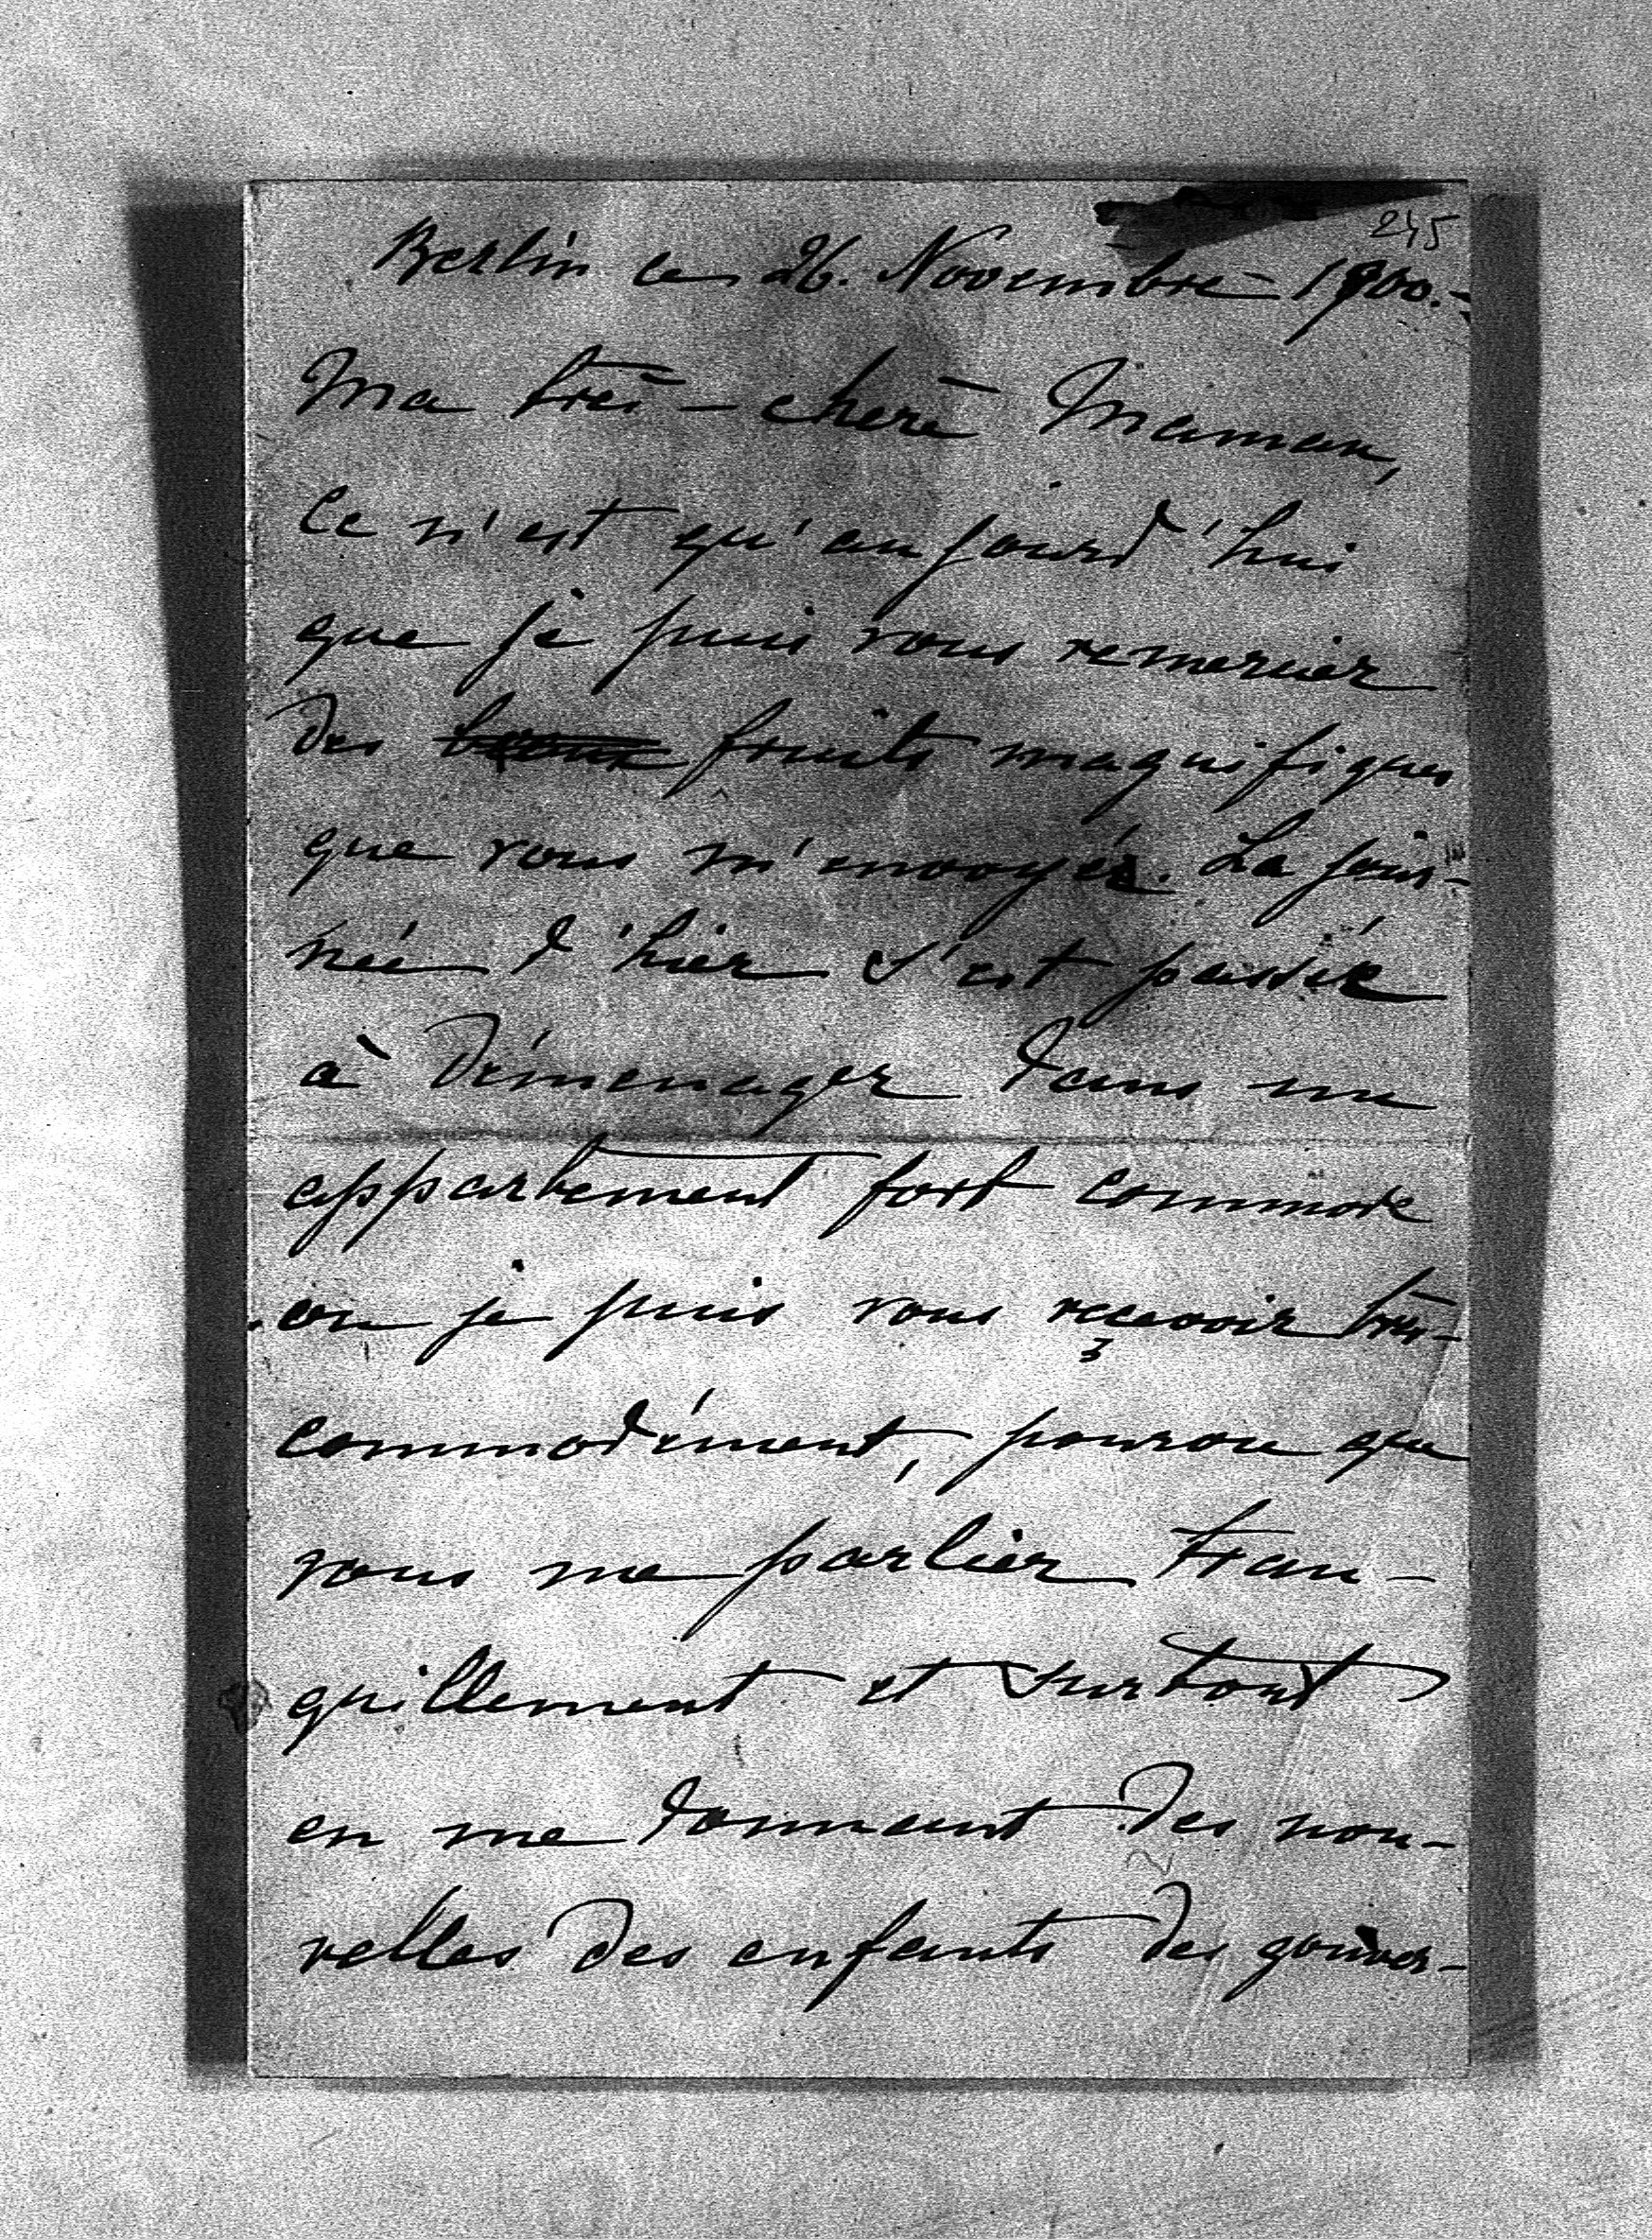 245
Berlin le 26. Novembre 1900.-
Ma très-chère Maman,
Ce n'est qu'aujourd'hui
que je puis vous remercier
des fruits magnifiques
que vous m'envoyés. La jour-
née d'hier s'est passée
à déménager dans un
appartement fort commode
ou je puis vous reçevoir très-
commodément, pourvu que
vous me parliez tran-
quillement et surtout
en me donnant des nou-
velles des enfants des gouver-